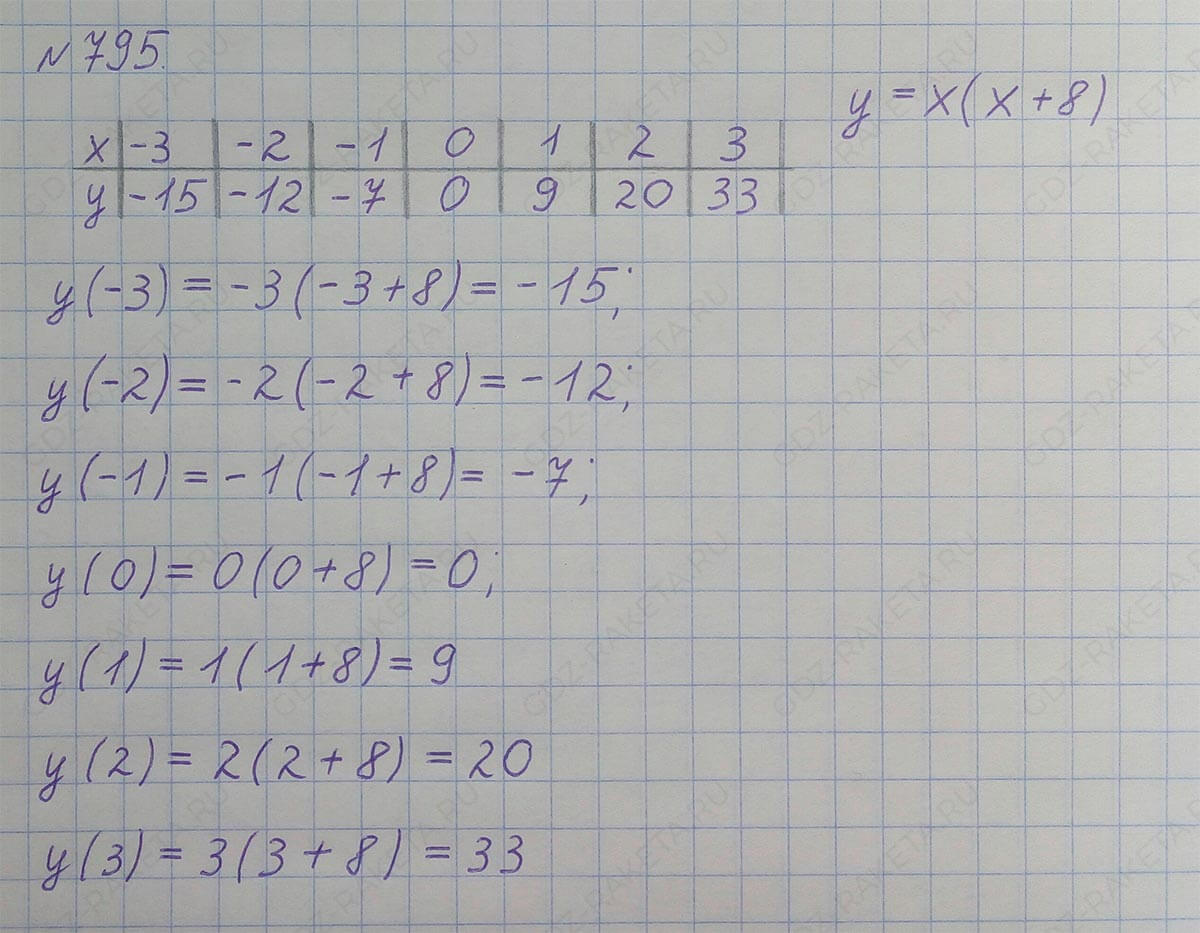 №795.
y = x(x+8)
x -3 -2 -1 0 1 2 3
y -15 -12 -7 0 9 20 33
y(-3) = -3(-3+8) = -15;
y(-2) = -2(-2+8) = -12;
y(-1) = -1(-1+8) = -7;
y(0) = 0(0+8) = 0;
y(1) = 1(1+8) = 9
y(2) = 2(2+8) = 20
y(3) = 3(3+8) = 33
GDZ-RAKETA.RU